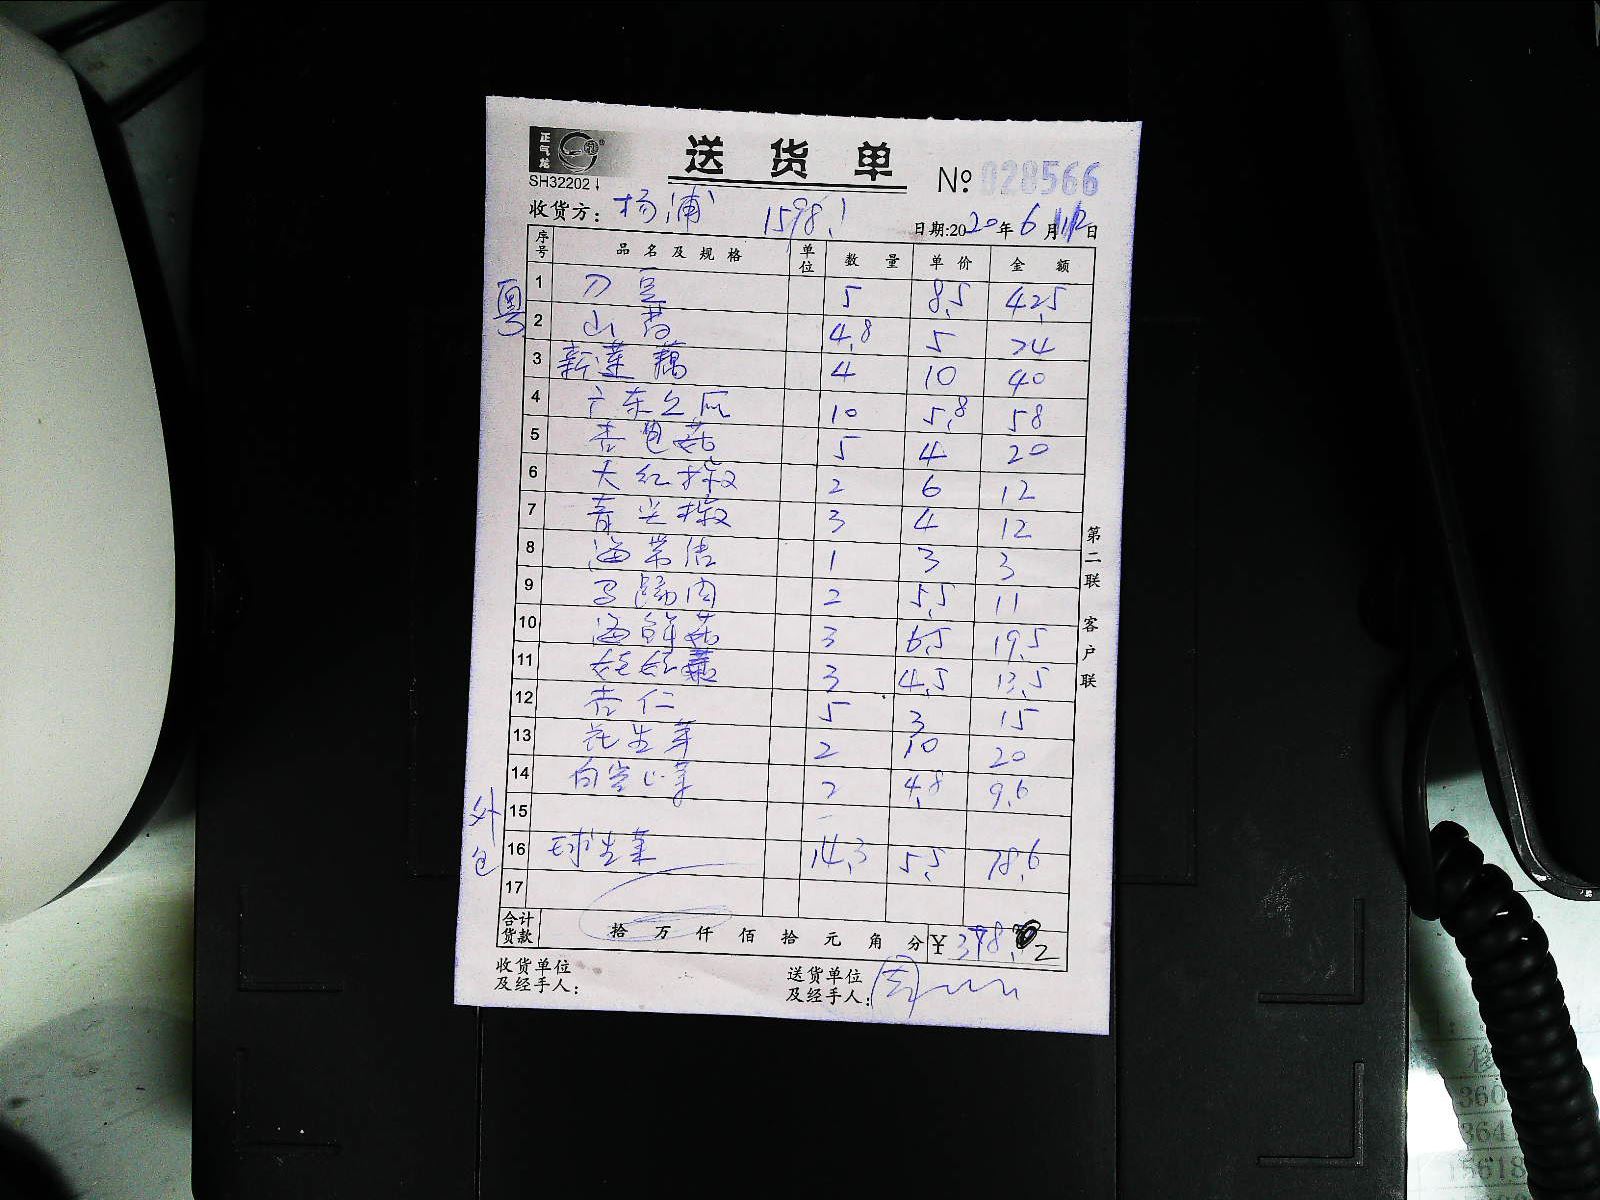 正气龙
SH32202
送货单
№ 028566
收货方: 杨浦 1598.
日期:2020年6月12日
序号 品名及规格 单位 数量 单价 金额
粤
1 刀豆 5 8.5 42.5
2 山药 4.8 5 24
3 新莲藕 4 10 40
4 广东 10 5.8 58
5 杏鲍菇 5 4 20
6 大红椒 2 6 12
7 青尖椒 3 4 12
8 海带结 1 3 3
9 马蹄肉 2 5.5 11
10 海鲜菇 3 6.5 19.5
11 娃娃菜 3 4.5 13.5
12 杏仁 5 3 15
13 花生芽 2 10 20
14 白空心菜 2 4.8 9.6
15
外仓
16 球生菜 14.3 5.5 78.6
17
合计货款 拾万仟佰拾元角分 ¥ 378. 2
收货单位及经手人:
送货单位及经手人: 周
第二联 客户联
360
364
15618